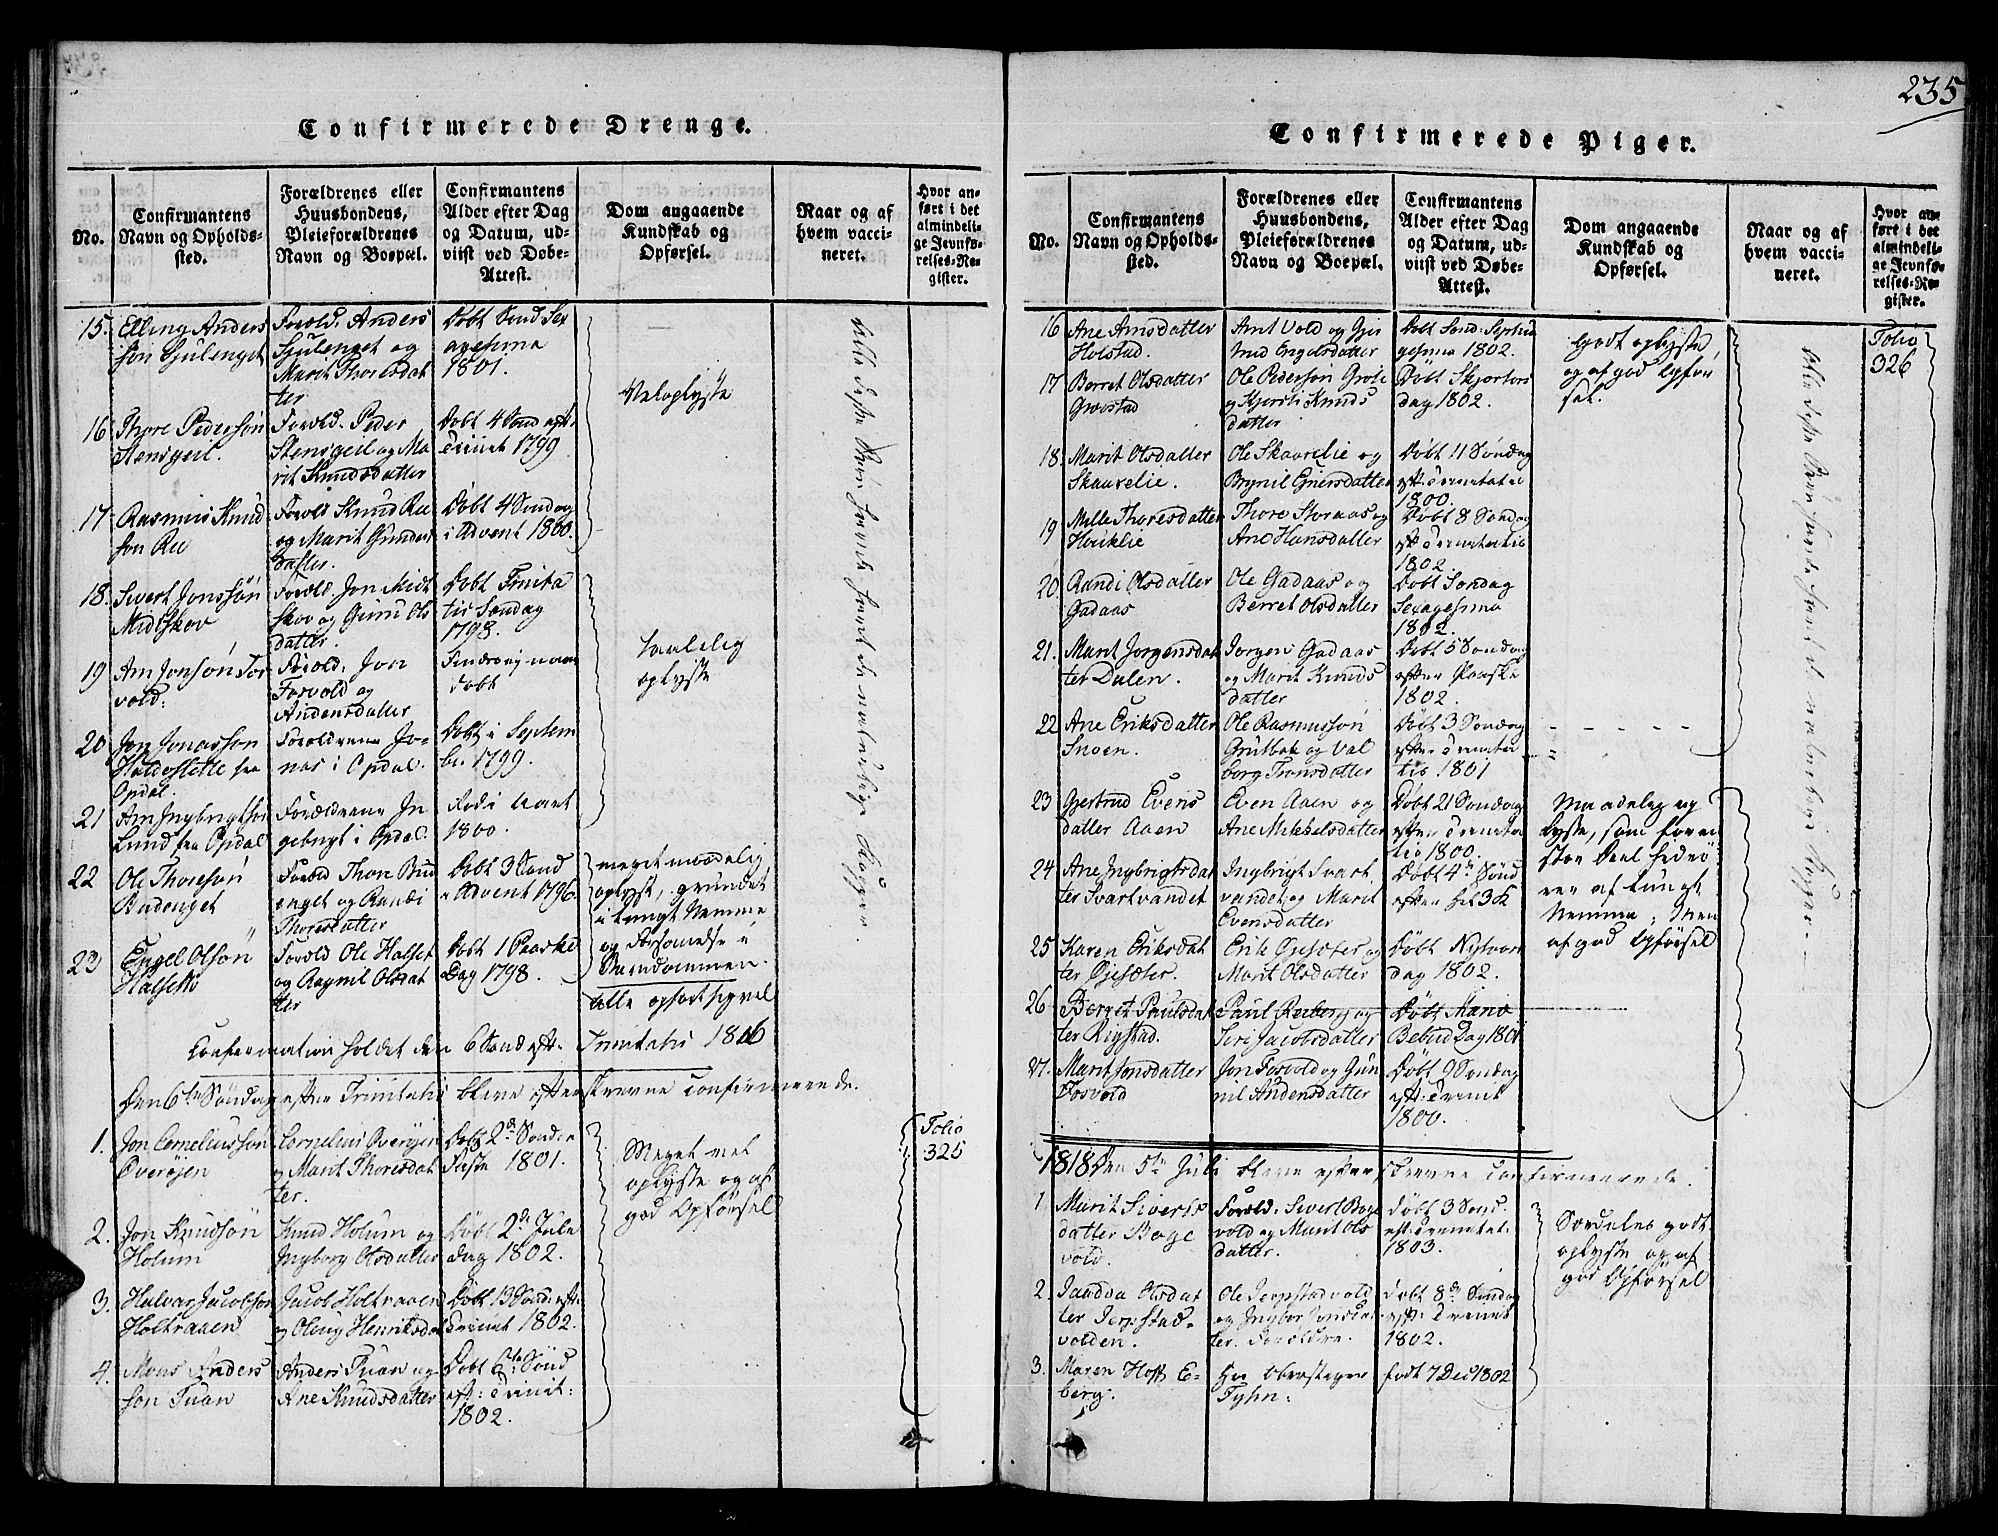 235
Confirmerede Drenge.
No.
Confirmantens
Navn og Opholds-
sted.
Forældrenes eller
Huusbondens,
Pleieforældrenes
Navn og Boepæl.
Confirmantens
Alder efter Dag
og Datum, ud-
viist ved Døbe-
Attest.
Dom angaaende
Kundskab og
Opførsel.
Naar og af
hvem vacci-
neret.
Hvor an-
ført i det
almindeli-
ge Jevnfø-
relses-Re-
gister.
15. Elling Anders
søn
Forold. Anders
og
Marit Thoresdat
ter
Døbt Sønd Sex
agesima
1801.
Veloplyste
16 Thore Pedersøn
Stensgeil.
Forold. Peder
Stensgeil og Ma
rit Knudsdatter
Døbt 4 Sønd eft:
Trinit 1799
17 Rasmus Knud
søn Ru
Forold Knud Ru
og Marit Gunders
datter.
Døbt 4 Søndag
i Advent 1800.
18. Sivert Jonssøn
Midtskov
Forold. Jon Midt
skov og Guru Ols
datter.
Døbt Trinita
tis Søndag
1798.
19 Arn Jonsøn Fos
vold.
Forold. Jon
Fosvold og
Andersdatter
døbt
taalelig
oplyste
20 Jon Jonassøn
fra
Opdal.
Forældrene Jo-
nas i Opdal.
Døbt i Septem
br. 1799.
21 Arn Ingbrigtsøn
Lund fra Opdal
Forældrene In
gebrigt i Opdal.
Fød i Marti
1800.
22 Ole Thoresøn
Budenget
Forold Thore Bud
enget og Randi
Thoresdatter
Døbt 3 Sønd
i Advent 1796.
meget maadelig
oplyst, grundet
i tungt Nemme
og Forsømelse i
Barndommen.
23 Engel Olsøn
Halset
Forold Ole Halset
og Ragnil Olsdat
ter
Døbt 1 Paaske
Dag 1798.
Alle
Alle disse Børn havde havt de naturlige Kopper.
Confirmation holdet den 6 Sønd eft. Trinitatis 1816
Den 6te Søndag efter Trinitatis bleve efterskrevne confirmerede.
1. Jon Corneliussøn
Overøjen
Cornelius Overøjen
og Marit Thoresdat
ter.
Døbt 2d Sønd i
Faste 1801.
Meget vel
oplyste og af
god Opførsel
Folio
325
2. Jon Knudsøn
Holum
Knud Holum og
Ingborg Olsdatter
Døbt 2de Jule
dag 1802.
3. Halvar Jacobsøn
Holtraaen
Jacob Holtraaen
og Oling Henriksdat
Døbt 13 Sønd efter
Trinit 1802.
4. Mons Anders
søn Tuan
Anders Tuan og
Ane Knudsdatter
Døbt 6te Sønd
eft: Trinit:
1802.
Confirmerede Piger.
No.
Confirmantens
Navn og Opholds-
sted.
Forældrenes eller
Huusbondens,
Pleieforældrenes
Navn og Boepæl.
Confirmantens
Alder efter Dag
og Datum, ud-
viist ved Døbe-
Attest.
Dom angaaende
Kundskab og
Opførsel.
Naar og af
hvem vacci-
neret.
Hvor an-
ført i det
almindeli-
ge Jevnfø-
relses-Re-
gister.
16 Ane Arnsdatter
Holstad.
Arnt Vold og Gjer
trud Engelsdatter
Døbt Sønd: Septua
gesima 1802.
Godt oplyste
og af god Opfør
sel.
Folio
326
17 Berret Olsdatter
Grøtstad
Ole Pedersøn
og Kjersti Knuds
datter
Døbt Skjærtors
dag 1802.
18. Marit Olsdatter
Skaurelie.
Ole Skaarelie og
Brynil Einersdatter
Døbt 11 Søndag
eft Trinitatis
1800.
19 Mille Thoresdatter
Thore Storaas og
Ane Hansdatter
Døbt 8 Søndag
eft Trinitatis
1802.
20 Randi Olsdatter
Gadaas
Ole Gadaas og
Berret Olsdatter
Døbt Søndag
Sexagesima
1802.
21. Marit Jorgensdat
ter Dalen.
Jorgen Gadaas
og Marit Knuds
datter
Døbt 5 Søndag
efter Paaske
1802.
22 Ane Eriksdatter
Snoen.
Ole Rasmussøn
og Val
borg Tronsdatter
Døbt 3 Søndag
efter Trinita
tis 1801
23 Gjertrud Evens
datter Aaen
Even Aaen og
Ane Mikkelsdatter
Døbt 21 Søndag
efter Trinita
tis 1800.
Maadelig op
lyste, som for en
stor Deel hidrø
rer af tungt
Nemme; men
af god Opførsel
24 Ane Ingbrigtsdat
ter Svartvandet
Ingbrigt Svart
vandet og Marit
Evensdatter
Døbt 4de Sønd
efter
25 Karen Eriksdat
ter Øjesæter.
Erik Øjesæter og
Marit Olsdatter
Døbt Nytaars
dag 1802.
26 Berget Paulsdat
ter Rigstad.
Paul Rosberg og
Siri Jacobsdatter
Døbt Mariæ
Bebud Dag 1801
27. Marit Jonsdatter
Fosvold
Jon Fosvold og Gun
nil Andersdatter
Døbt 9 Søndag
eft: Trinit
1800.
Alle disse Børn havde havt de naturlige Kopper.
1818. Den 5te Juli bleve efterskrevne confirmerede.
1 Marit Siverts
datter Boge
vold.
Forold. Sivert Boge
vold og Marit Ols
datter.
Døbt 3 Sønd.
eft: Trinitat.
1803.
Særdeles godt
oplyste og af
god Opførsel
2 Olsdat
ter Jerpstad-
volden.
Ole Jerpstadvold
og Ingbor Jonsdat
ter. Forældre.
Døbt 8de Søndag
eft: Trinit
1802.
3. Maren Hoff E-
berg.
Hr Oberstager
Tyhn:
født 7 Dec 1802